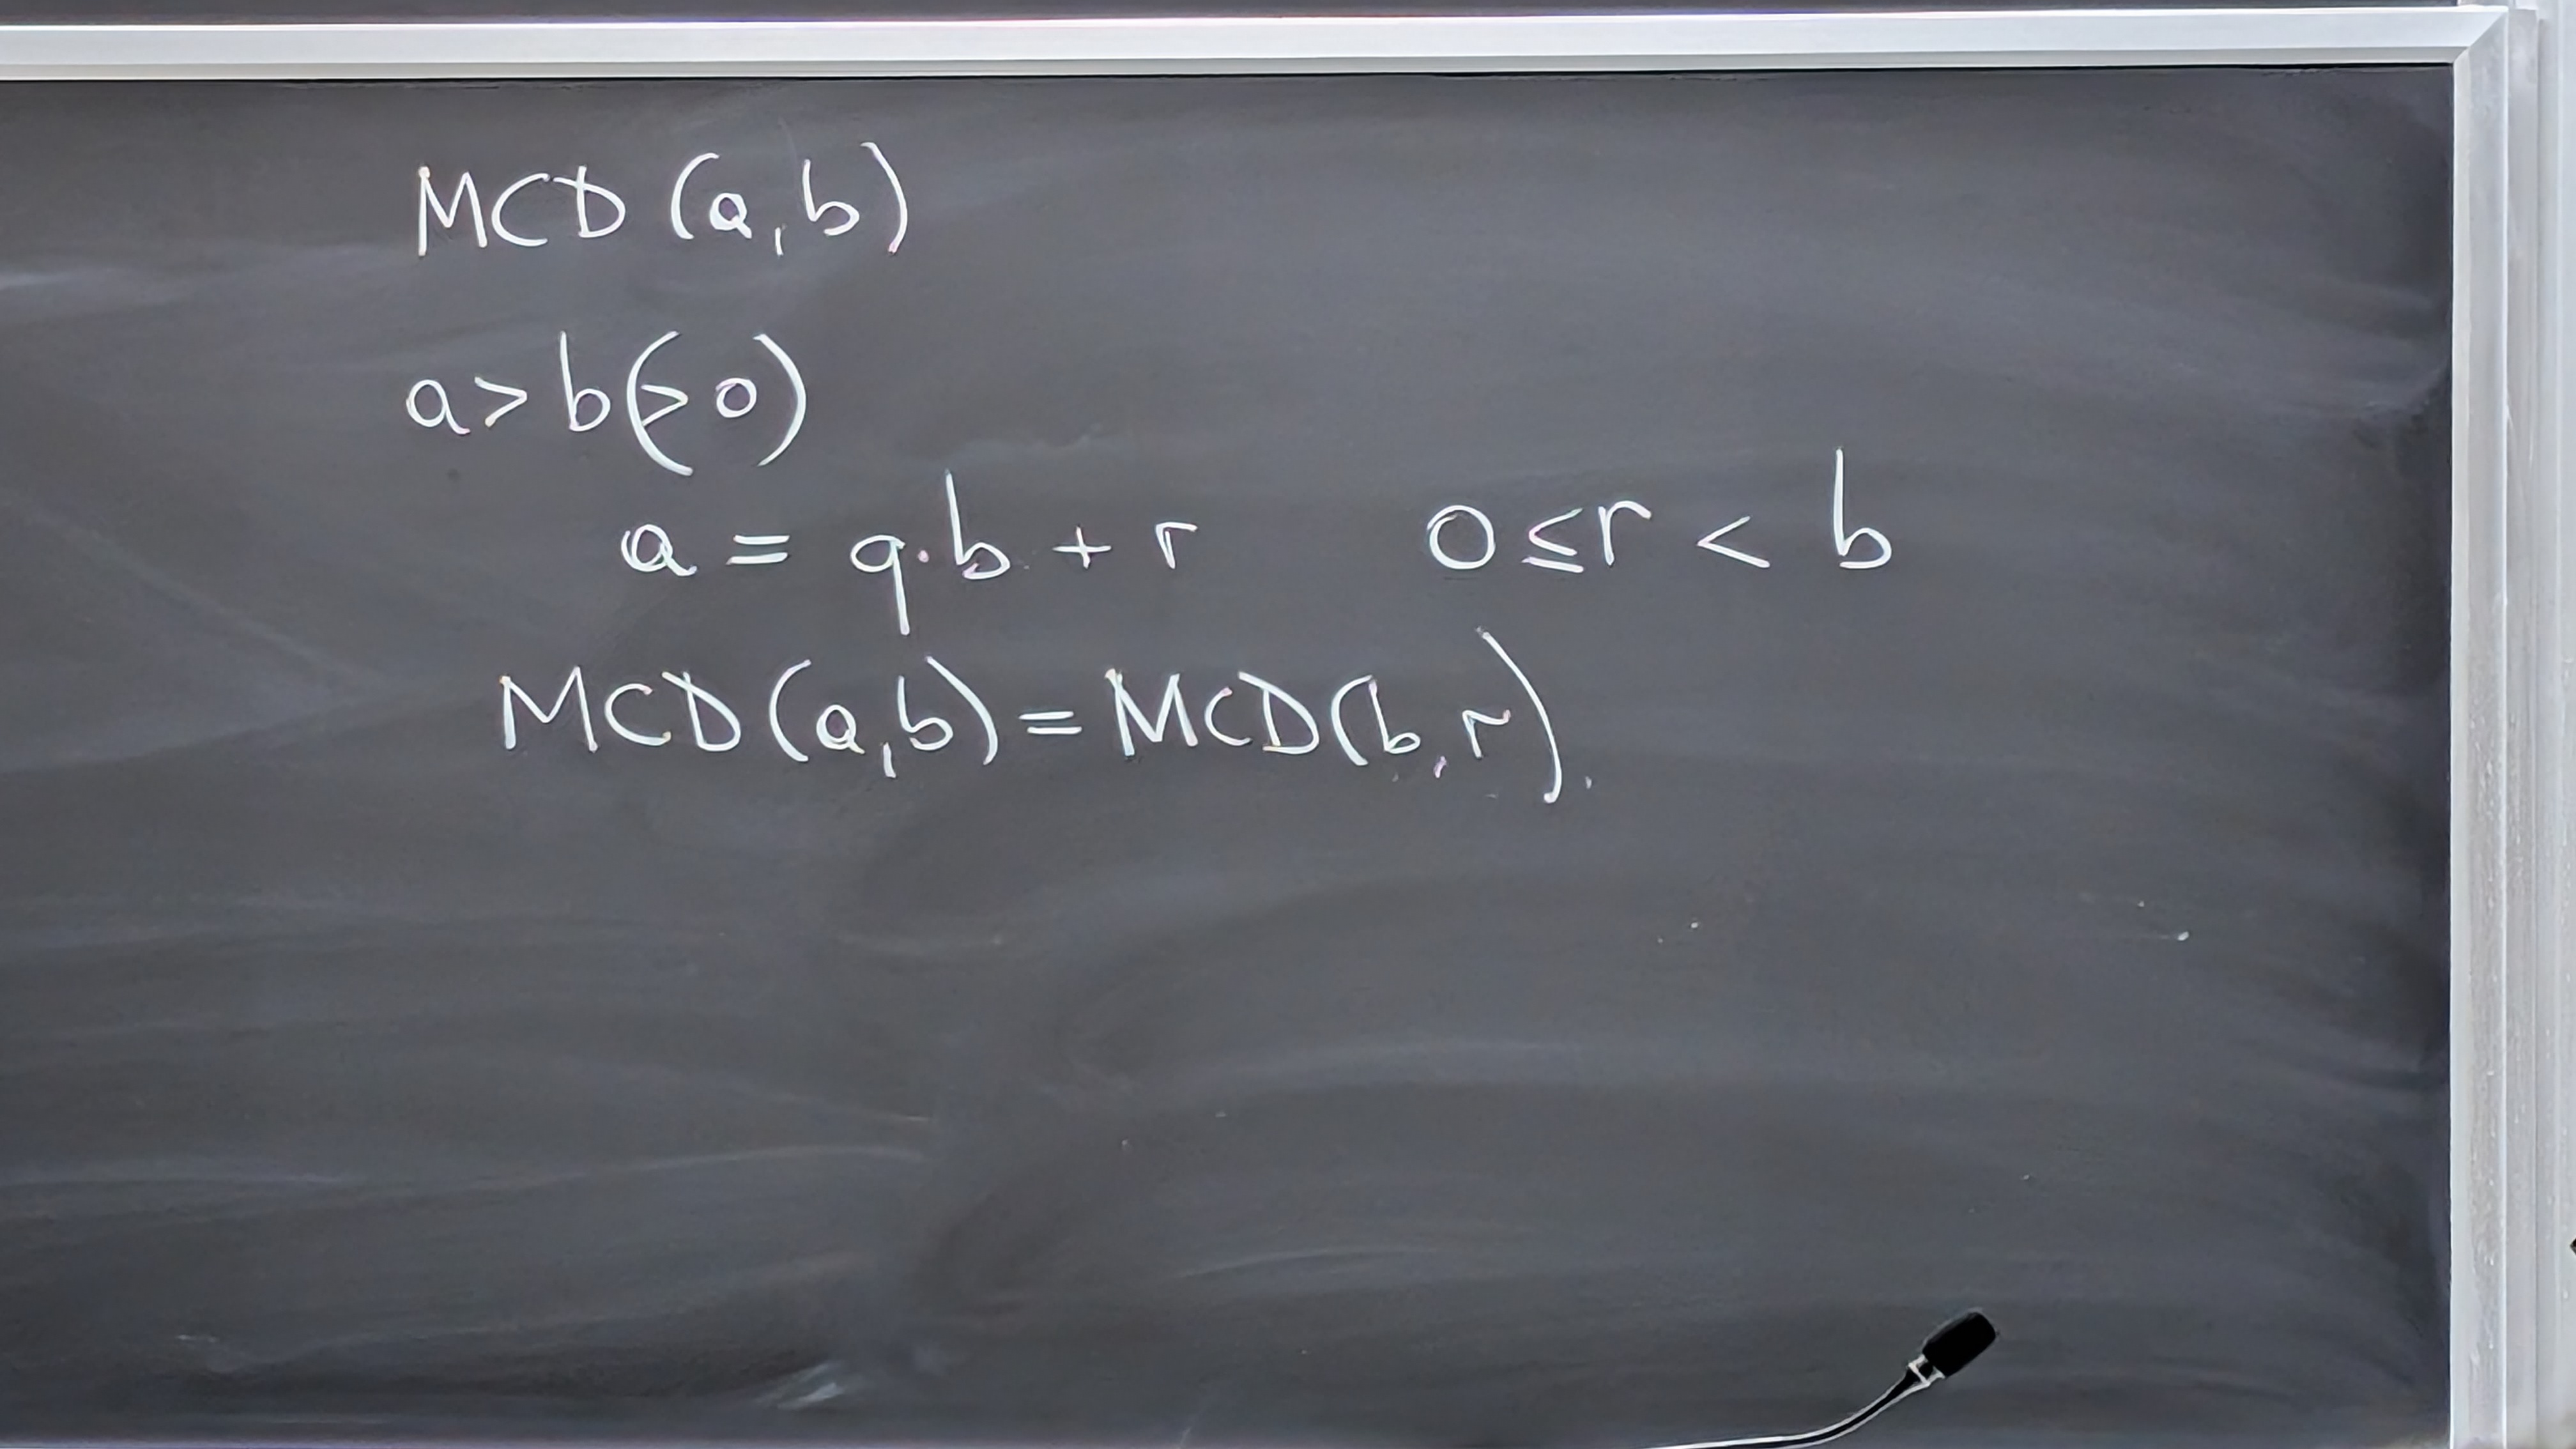 MCD (a,b)
a > b (> 0)
a = q·b + r 0 ≤ r < b
MCD (a,b) = MCD (b,r).